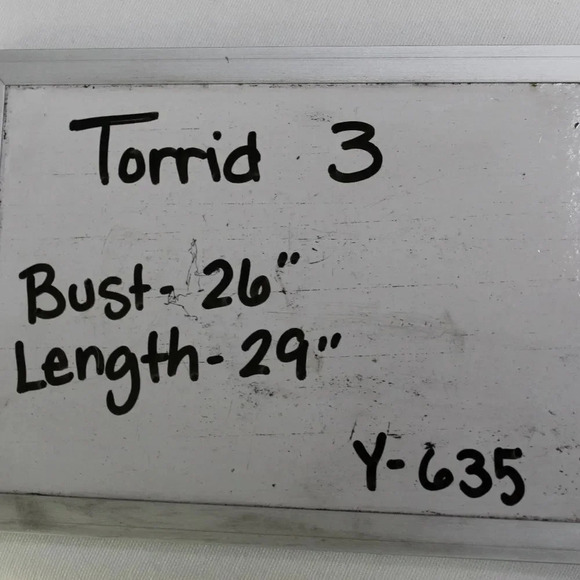 Torrid 3
Bust- 26"
Length- 29"
Y-635